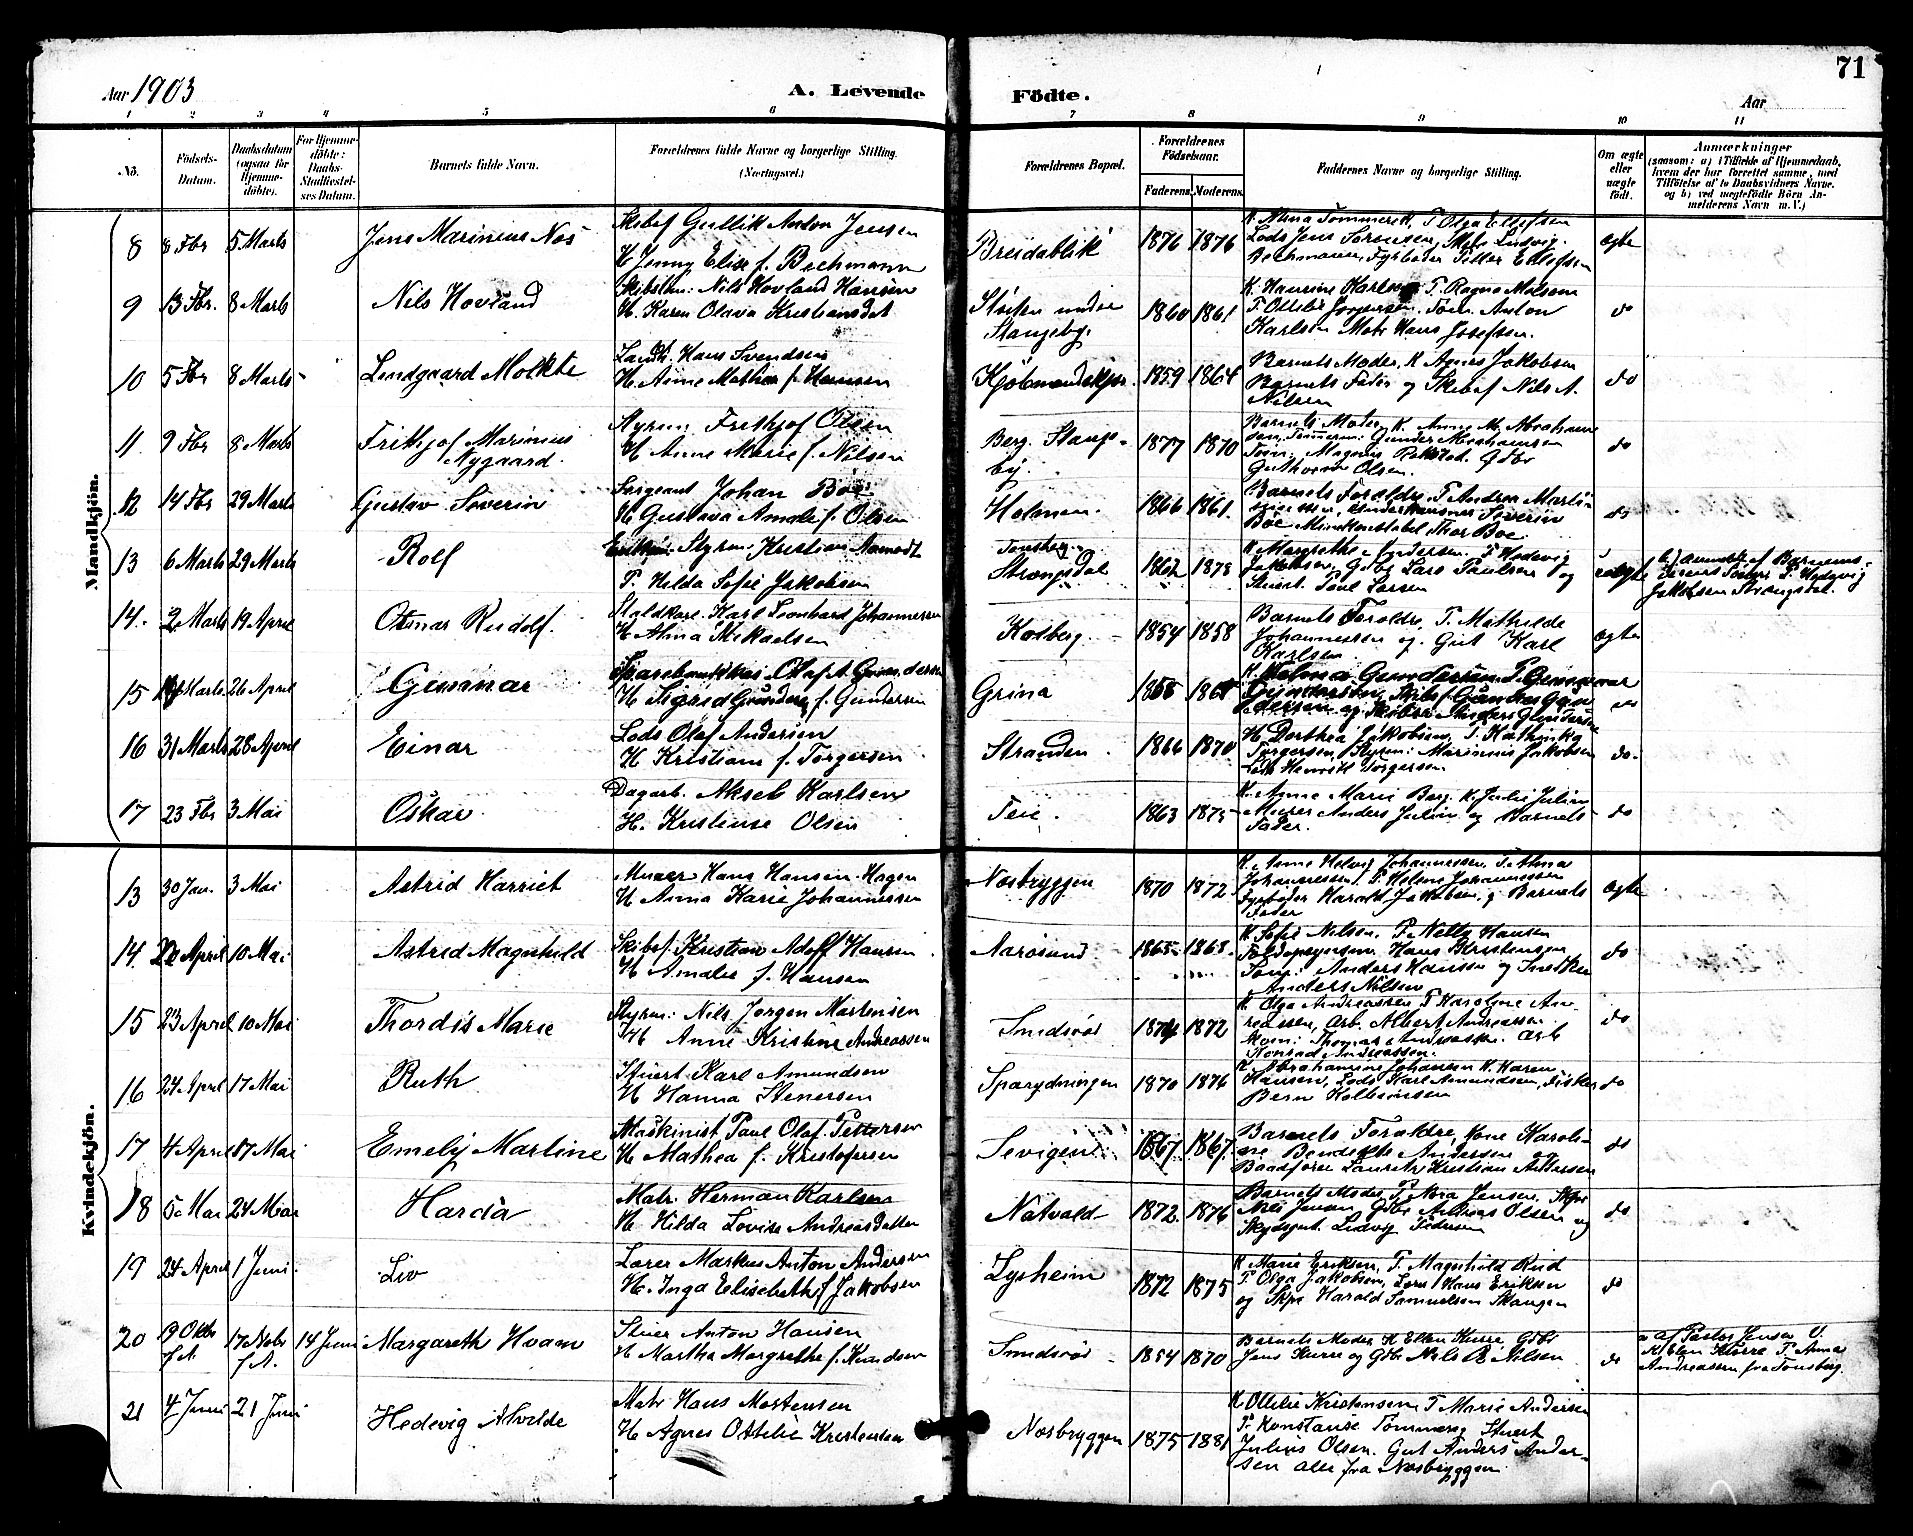 71
Aar 1903
A. Levende
Födte.
Aar
1 2 3 4 5 6 7 8 9 10 11
No.
Födsels-Datum.
Daabsdatum (ogsaa for Hjemmedöbte).
For Hjemmedöbte: Daabs-Stadfæstelses Datum.
Barnets fulde Navn.
Forældrenes fulde Navne og borgerlige Stilling. (Næringsvei.)
Forældrenes Bopæl.
Forældrenes Födselsaar.
Faderens. Moderens.
Faddernes Navne og borgerlige Stilling.
Om ægte eller uægte födt.
Anmærkninger
(saasom: a) i Tilfælde af Hjemmedaab, hvem der har forrettet samme, med Tilföielse af to Daabsvidners Navne. og b) ved uægtefödte Börn Anmelderens Navn m. V.)
Mandkjön.
8 8 Fbr 5 Marts Jens Marinius Næs
Skibsf Gullik Anton Jensen
H Jenny Elise f. Bechmann
Breidablik 1876 1876
Lods Jens Sørensen, Mats Ludvig
Bechmann, Fyrbøder Petter Ellefsen
ægte
9 13 Fbr. 8 Marts Nils Hovland
Skibstm: Nils Hovland Hansen
H. Karen Olava Kristiansdat
Sloiten under
Stangeby. 1860 1861
Karlsen Matr Hans Josefsen.
do
10 5 Fbr 8 Marts Lindgaard Molkte
Landh. Hans Svendsen
H. Anne Mathea f. Hansen
Kjøbmandskjær. 1859 1864
Barnets Moder, K Agnes Jakobsen
Barnets Fader og Skibsf Nils A.
Nilsen
do
11. 9 Fbr 8 Marts Frithjof Marinius
Nygaard.
Styrm. Frithjof Olsen
H Anne Marie f. Nilsen
Berg. Stangeby. 1877 1870
Barnets Moder, K Anne M. Abrahamsen
Tømmerm: Gunder Abrahamsen
Guthorm Olsen.
do
12 14 Fbr 29 Marts Gustav Severin
Sergeant Johan Bøe
H Gustava Amalie f. Olsen
Holmen. 1866 1861.
Barnets Foraldre, P. Andrea Martinsen,
Severin
Bøe Minekonstabel Thor Boe
do
13 6 Marts 29 Marts Rolf
Styrm. Kristian Aamodt
P. Helda Sofie Jakobsen
Tønsberg
Strængsdal 1862 1878
K. Margrethe Andersen P Hedevig
Jakobsen, Gdbr Lars Paulsen og
Stuert. Paul Larsen
uægte
Jakobsen Strængsdal.
14. 2 Marts 19 April Otmar Rudolf.
Staldkarl. Karl Leonhard Johannesen
H Alma Mikaelsen
Kolberg. 1854 1858
Barnets Foraldre, P. Mathilde
Johannessen og. Gut Karl
Karlsen
ægte
15 14 Marts 26 April Gunnar
Olaf A. Gundersen
H Sigrid f. Gundersen
Grina 1865
do
16 31 Marts 28 April Einar
Lods Olaf Andersen
H Kristiane f. Torgersen
Stranden 1866 1870
H Dorthea Jakobsen, P. Kathinka
Torgersen, Styrm: Marinius Jakobsen
Lods Henrik Torgersen.
do.
17 23 Fbr 3 Mai Oskar
Dagarb. Aksel Karlsen
H. Kristense Olsen
Teie. 1863 1875
K. Anne Marie Berg. K. Julie Julin
Murer Anders Julin og Barnets
Fader.
do
Kvindekjön.
13 30 Jan. 3 Mai Astrid Harriet
Murer Hans Hansen Hagen
H Anna Karie Johannessen
Næsbryggen 1870 1872
K. Anne Helvig Johannessen, P. Alma
Johannessen, P Helene Johannessen
Fyrbøder Harald Jakobsen, og Barnets
Fader
ægte
14. 20 April 10 Mai Astrid Magnhild
Skibsf. Kristian Adolf Hansen
H Amalie f. Hansen
Aarøsund 1865 1868.
K Sofie Nilsen, P. Nelly Hansen
Toldopsynsm. Hans Kristensen
Anders Hansen og Snedker
Anders Nilsen
do
15 23 April 10 Mai Thordis Marie
Styrm: Nils Jørgen Mortensen
H Anne Kristine Andreassen
Smidsrød 1874 1872
K. Olga Andreassen P Karoline Andreassen,
Arb. Albert Andreassen
Konrad Andreassen.
do
16 24 April 17 Mai Ruth
Stuert. Karl Amundsen
H Hanna Stenersen
Sparydningen 1870 1876
K. Abrahamine Johansen K. Karen
Hansen, Lods Karl Amundsen, Fisker
Bern Kolbeinsen
do
17 4 April 17 Mai Emely Martine
Maskinist Paul Olaf Pettersen
H Mathea f. Kristofersen
Sevigen 1867 1867.
Barnets Foraldre, Kone Karoline
Bendikte Andersen og
Baadfører Lauritz Kristian Andersen
do
18 5 Mai 24 Mai Harda
Matr. Herman Karlsen
H. Hilda Lovise Andreasdatter
Nøtvald 1872 1876
Barnets Moder P. Nora Jensen, Skpr
Nils Jensen Gdbr Andreas Olsen og
Skydsgut Ludvig Pedersen
do
19 24 April 1 Juni. Liv
Lærer Markus Anton Andersen
H. Inga Elisabeth f Jakobsen
Lysheim 1872 1875
K Marie Eriksen, P. Magnhild Rud
P Olga Jakobsen, Lærer Hans Eriksen
og Skpr Harald Samuelsen Skaugen
do
20 19 Oktbr f.A. 17 Novbr f.A. 14 Juni Margareth Hvam
Stuer Anton Hansen
H Martha Margrethe f. Knudsen
Smidsrød 1854 1870
Barnets Moder K Ellen Kurre, Gdbr
Jens Kurre og Gdbr Nils B Nilsen
do
a af Pastor Jensen V.
K Elen Kurre P Anna
Andreasen fra Tønsberg.
21 4 Juni 21 Juni Hedevig Alvilde
Matr Hans Mortensen
H Agnes Ottilie Kristensen
Næsbryggen 1875 1881
K Ottilie Kristensen, P Marie Andersen
P. Konstanse Tømmerø Stuert
Julius Olsen. Gut Anders Andersen
alle fra Næsbryggen
do